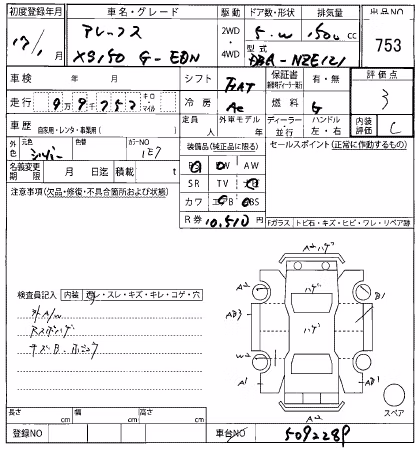 初度登録年月 車名・グレード 駆動 ドア数・形状 排気量 出品NO
17/1 アレックス 2WD 5・W 1500 cc 753
XS150 G-EDN 4WD 型式 DBA-NZE121
車検 年 月 シフト FAT 保証書 有・無 評価点
走行 99252 キロ・マイル 冷房 AC 燃料 G 3
車歴 自家用・レンタ・事業用( ) 定員 人 外車モデル 年 ディーラー 並行 ハンドル 左・右 内装評価 C
元色 シルバー 色替 カラーNO 1E7 装備品(純正品に限る) セールスポイント(正常に作動するもの)
名義変更期限 月 日迄 積載 t PS PW AW
注意事項(欠品・修復・不具合箇所および状態) SR TV ナビ
カワ エアB ABS
R券 10,510円 Fガラス トビ石・キズ・ヒビ・ワレ・リペア跡
検査員記入 内装 汚レ・スレ・キズ・キレ・コゲ・穴
外A/W
Rスポハゲ
キズB・
A2ハゲ
A2 ハゲ B1
AB3 ハゲ
W2
A1 AB1
A2
スペア
長さ cm 幅 cm 高さ cm
登録NO 車台No 5092289